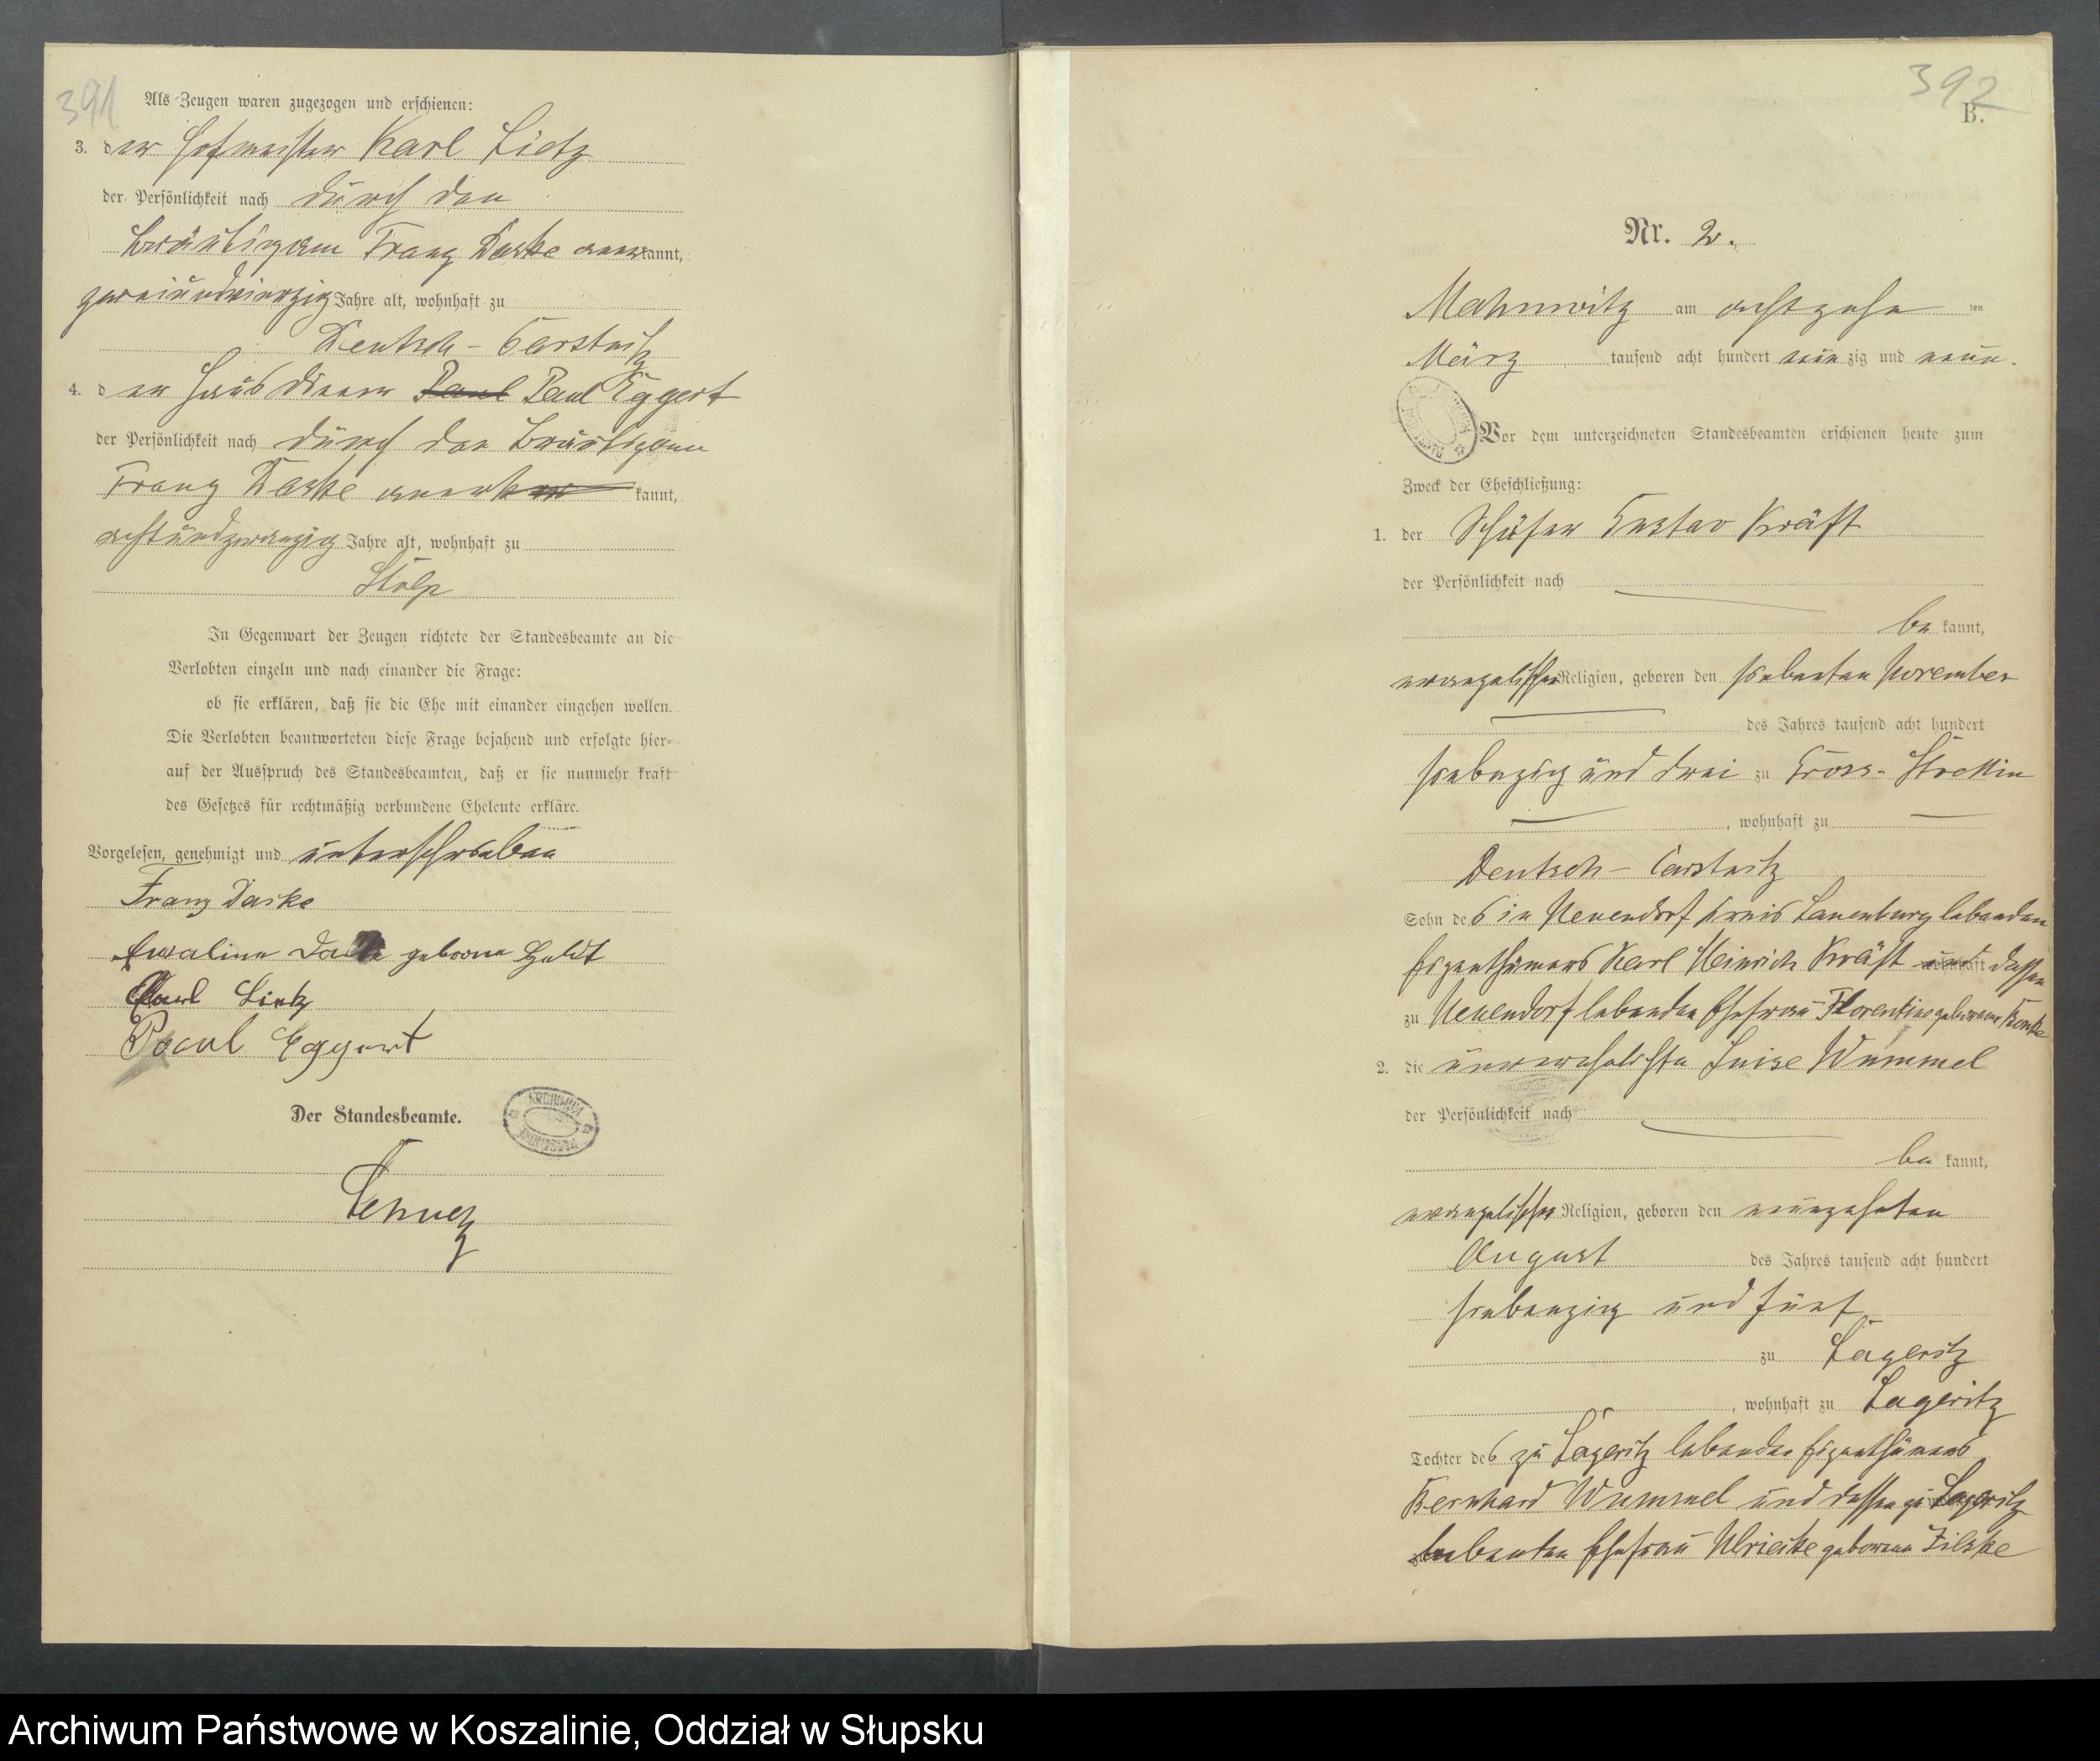 391
Als Zeugen waren zugezogen und erschienen:
3. der Hofmeister Karl Lietz
der Persönlichkeit nach durch den
Bräutigam Franz Daske anerkannt,
zweiundvierzig Jahre alt, wohnhaft zu
Deutsch-Carstnitz
4. der Hausdiener Paul Paul Eggert
der Persönlichkeit nach durch den Bräutigam
Franz Daske anerkannt,
achtundzwanzig Jahre alt, wohnhaft zu
Stolp
In Gegenwart der Zeugen richtete der Standesbeamte an die
Verlobten einzeln und nach einander die Frage:
ob sie erklären, daß sie die Ehe mit einander eingehen wollen.
Die Verlobten beantworteten diese Frage bejahend und erfolgte hier-
auf der Ausspruch des Standesbeamten, daß er sie nunmehr kraft
des Gesetzes für rechtmäßig verbundene Eheleute erkläre.
Vorgelesen, genehmigt und unterschrieben
Franz Daske
geborne
Karl Lietz
Paul Eggert
Der Standesbeamte.
392
B.
Nr. 2.
Mahnwitz am achtzehn ten
März tausend acht hundert neunzig und neun.
Vor dem unterzeichneten Standesbeamten erschienen heute zum
Zweck der Eheschließung:
1. der Schäfer Gustav Kräft
der Persönlichkeit nach
be kannt,
evangelischer Religion, geboren den siebenten November
des Jahres tausend acht hundert
siebenzig und drei zu Gross-Strellin
, wohnhaft zu
Deutsch-Carstnitz
Sohn des in Neuendorf Kreis Lauenburg lebenden
Eigenthümers Karl Heinrich Kräft und dessen
zu Neuendorf lebenden Ehefrau Florentine geborene
2. die unverehelichte Luise Wummel
der Persönlichkeit nach
be kannt,
evangelischer Religion, geboren den neunzehnten
August des Jahres tausend acht hundert
siebenzig und fünf
zu Lageritz
, wohnhaft zu Lageritz
Tochter des zu Lageritz lebenden Eigenthümers
Bernhard Wummel und dessen zu Lageritz
lebenden Ehefrau Ulrieke geborene Zilske
Archiwum Państwowe w Koszalinie, Oddział w Słupsku